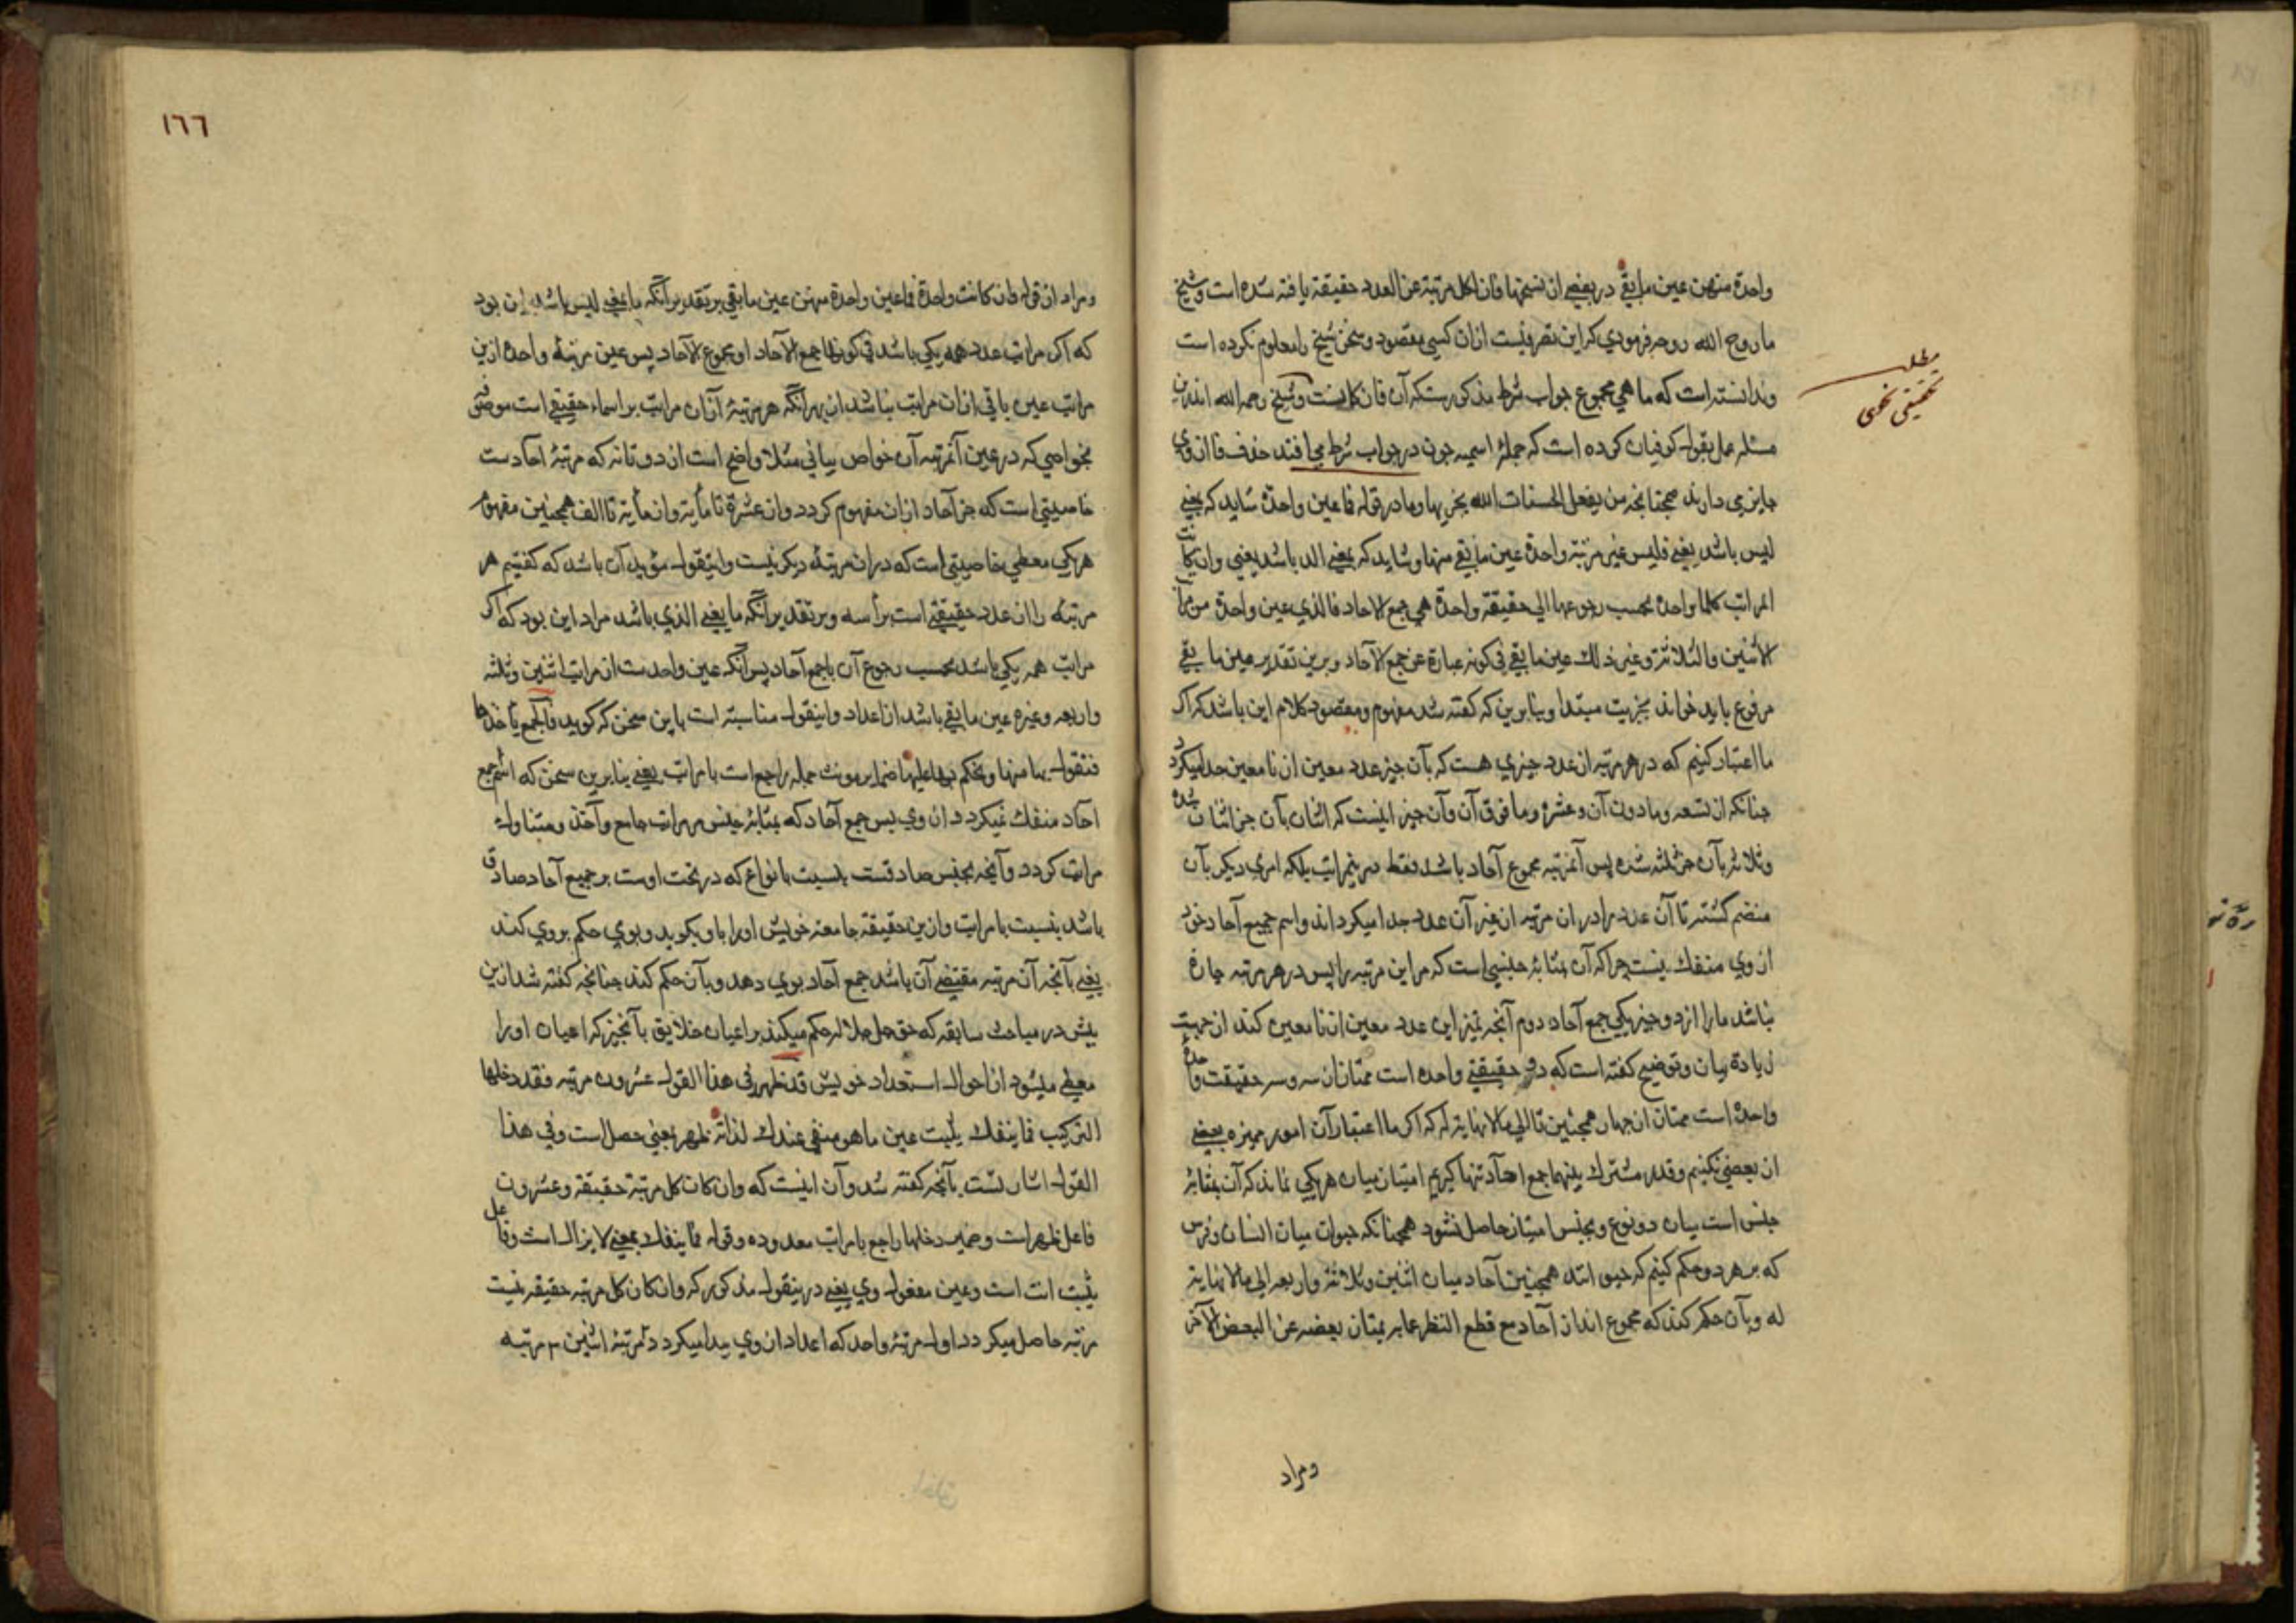 واحدة منهن عين ما بقي در بعضی از نسخها فان لكل مرتبة من العدد حقيقة يافته شده است و شيخ
ما روح الله روحه فرمودی كه اين تصرفيست از ان كسی مقصود و سخن شيخ را معلوم نكرده است
و ندانسته است كه ما هي مجموع جواب شرط مذكورست كه آن فان كانست و شيخ رحمه الله اندرين
مسئله عمل بقول كوفيان كرده است كه جملهٔ اسميه چون در جواب شرط می افتد حذف فا از وی
جايز می دارند همچنانچه من يفعل الحسنات الله يجزيها و ما در قوله فما عين واحدة شايد كه بمعنی
ليس باشد يعنی فليس عين مرتبة واحدة عين ما بقي منها و شايد كه بمعنی الذ باشد يعنی وان كانت
المراتب كلها واحدة بحسب رجوعها الى حقيقة واحدة هي جمع الاحاد فالذي عين واحدة من مراتب
الاثنين والثلاثة وغير ذلك عين ما بقي في كونه عبارة عن جمع الآحاد و برين تقدير عين ما بقي
مرفوع بايد خواند بخبريت مبتدا و بنا برين كه گفته شد مفهوم و مقصود كلام اين باشد كه اگر
ما اعتبار كنيم كه در هر مرتبه از عدد چيزی هست كه بآن چيز عدد معين از نا معين جدا ميگردد
چنانكه از تسعه و ما دون آن و عشره و ما فوق آن و آن چيز اينست كه اثنان بآن جز اثنان شده
و ثلاثه بآن جز ثلثه شده پس آن مرتبه مجموع آحاد باشد فقط در ينمراتب بلكه امری ديگر بآن
منضم گشته تا آن عدد را در ان مرتبه از غير آن عدد جدا ميگرداند و اسم جميع آحاد خود
از وی منفك نيست چرا كه آن بمثابهٔ جنسی است كه مر اين مرتبه را پس در هر مرتبه چاره
نباشد ما را از دو چيز يكی جمع آحاد دوم آنچه تميز اين عدد معين از نا معين كند از جهت
زيادة بيان و توضيح گفته است كه دو حقيقتی واحده است ممتاز از سه و سه حقيقت واحدة
واحدة است ممتاز از چهار همچنين تا الى ما لا نهاية له كه اگر ما اعتبار آن امور مميزه بعضی
از بعضی نكنيم و قدر مشترك بينهما جمع احآد تنها گيريم امتياز ميان هر يكی نماند كه آن بمثابهٔ
جنس است ميان دو نوع و بجنس امتياز حاصل نشود همچنانكه حيوان ميان انسان و فرس
كه بر هر دو حكم كنيم كه حيوانند همچنين آحاد ميان اثنين و ثلاثة و اربعه الى ما لا نهاية
له و بآن حكم كند كه مجموع انداز آحاد مع قطع النظر عما به يمتاز بعضه عن البعض الآخر
و مراد
مطلب
تحقيق نحوی
١٦٦
و مراد از قوله فان كانت واحدة فما عين واحدة منهن عين ما بقي بر تقدير آنكه ما بمعنی ليس باشد اين بود
كه اگر مراتب عدد همه يكی باشد في كونها جمع الآحاد او مجموع الآحاد پس عين مرتبهٔ واحده ازين
مراتب عين باقی از ان مراتب نباشد از بهر آنكه هر مرتبهٔ از ان مراتب بر اسماء حقيقی است موصوف
بخواصی كه در عين آن مرتبه آن خواص بيانی مثلا واضح است از دو تا نه كه مرتبهٔ احادست
خاصيتی است كه جز آحاد از ان مفهوم گردد و از عشرة تا مأية و از مأية تا الف همچنين مفهوم
هر يكی معطی خاصيتی است كه در ان مرتبهٔ ديگر نيست و اينقول مؤيد آن باشد كه گفتيم هر
مرتبه را از عدد حقيقتی است برأسه و بر تقدير آنكه ما بمعنی الذي باشد مراد اين بود كه اگر
مراتب همه يكی باشد بحسب رجوع آن با جمع آحاد پس آنكه عين واحدست از مراتب اثنين و ثلثه
و اربعه و غيره عين ما بقي باشد از اعداد و اينقول مناسبتر است باين سخن كه گويد فالجمع يأخذها
فنقول بها منها ونحكم بها عليها ضماير مونث جمله راجع است با مراتب يعنی بنا برين سخن كه اسم جمع
احآد منفك نميگردد از وی پس جمع آحاد كه بمثابهٔ جنس مر مراتب جامع و آخذ و متناول
مراتب گردد و آنچه بجنس صادقست بنسبت با نواع كه در تحت اوست بر جميع آحاد صادق
باشد بنسبت با مراتب و ازين حقيقة جامعه خويش او را باو بگويد و بوی حكم بر وی كند
يعنی بآنچه آن مرتبه مقتضی آن باشد جمع آحاد بوی دهد و بآن حكم كند چنانچه گفته شد ازين
پيش در مباحث سابقه كه حق جل جلاله حكم ميكند بر اعيان خلايق بآنچيز كه اعيان او را
معطی ميشود از احوال استعداد خويش قد ظهر في هذا القول عشرون مرتبة فقد دخلها
التركيب فما ينفك يثبت عين ما هو منفي عندك لذاته ظهر بمعنی حصل است و في هذا
القول اشارتست بآنچه گفته شد و آن اينست كه وان كان كل مرتبة حقيقة و عشرون
فاعل ظهر است و ضمير دخلها راجع با مراتب معدوده و قوله فما ينفك بمعنی لا يزال است و فاعل
يثبت انت است و عين مفعول وی يعنی درينقول مذكور كه وان كان كل مرتبه حقيقة بيست
مرتبه حاصل ميگردد اول مرتبهٔ واحد كه اعداد از وی پيدا ميگردد ٢ مرتبهٔ اثنين ٣ مرتبه